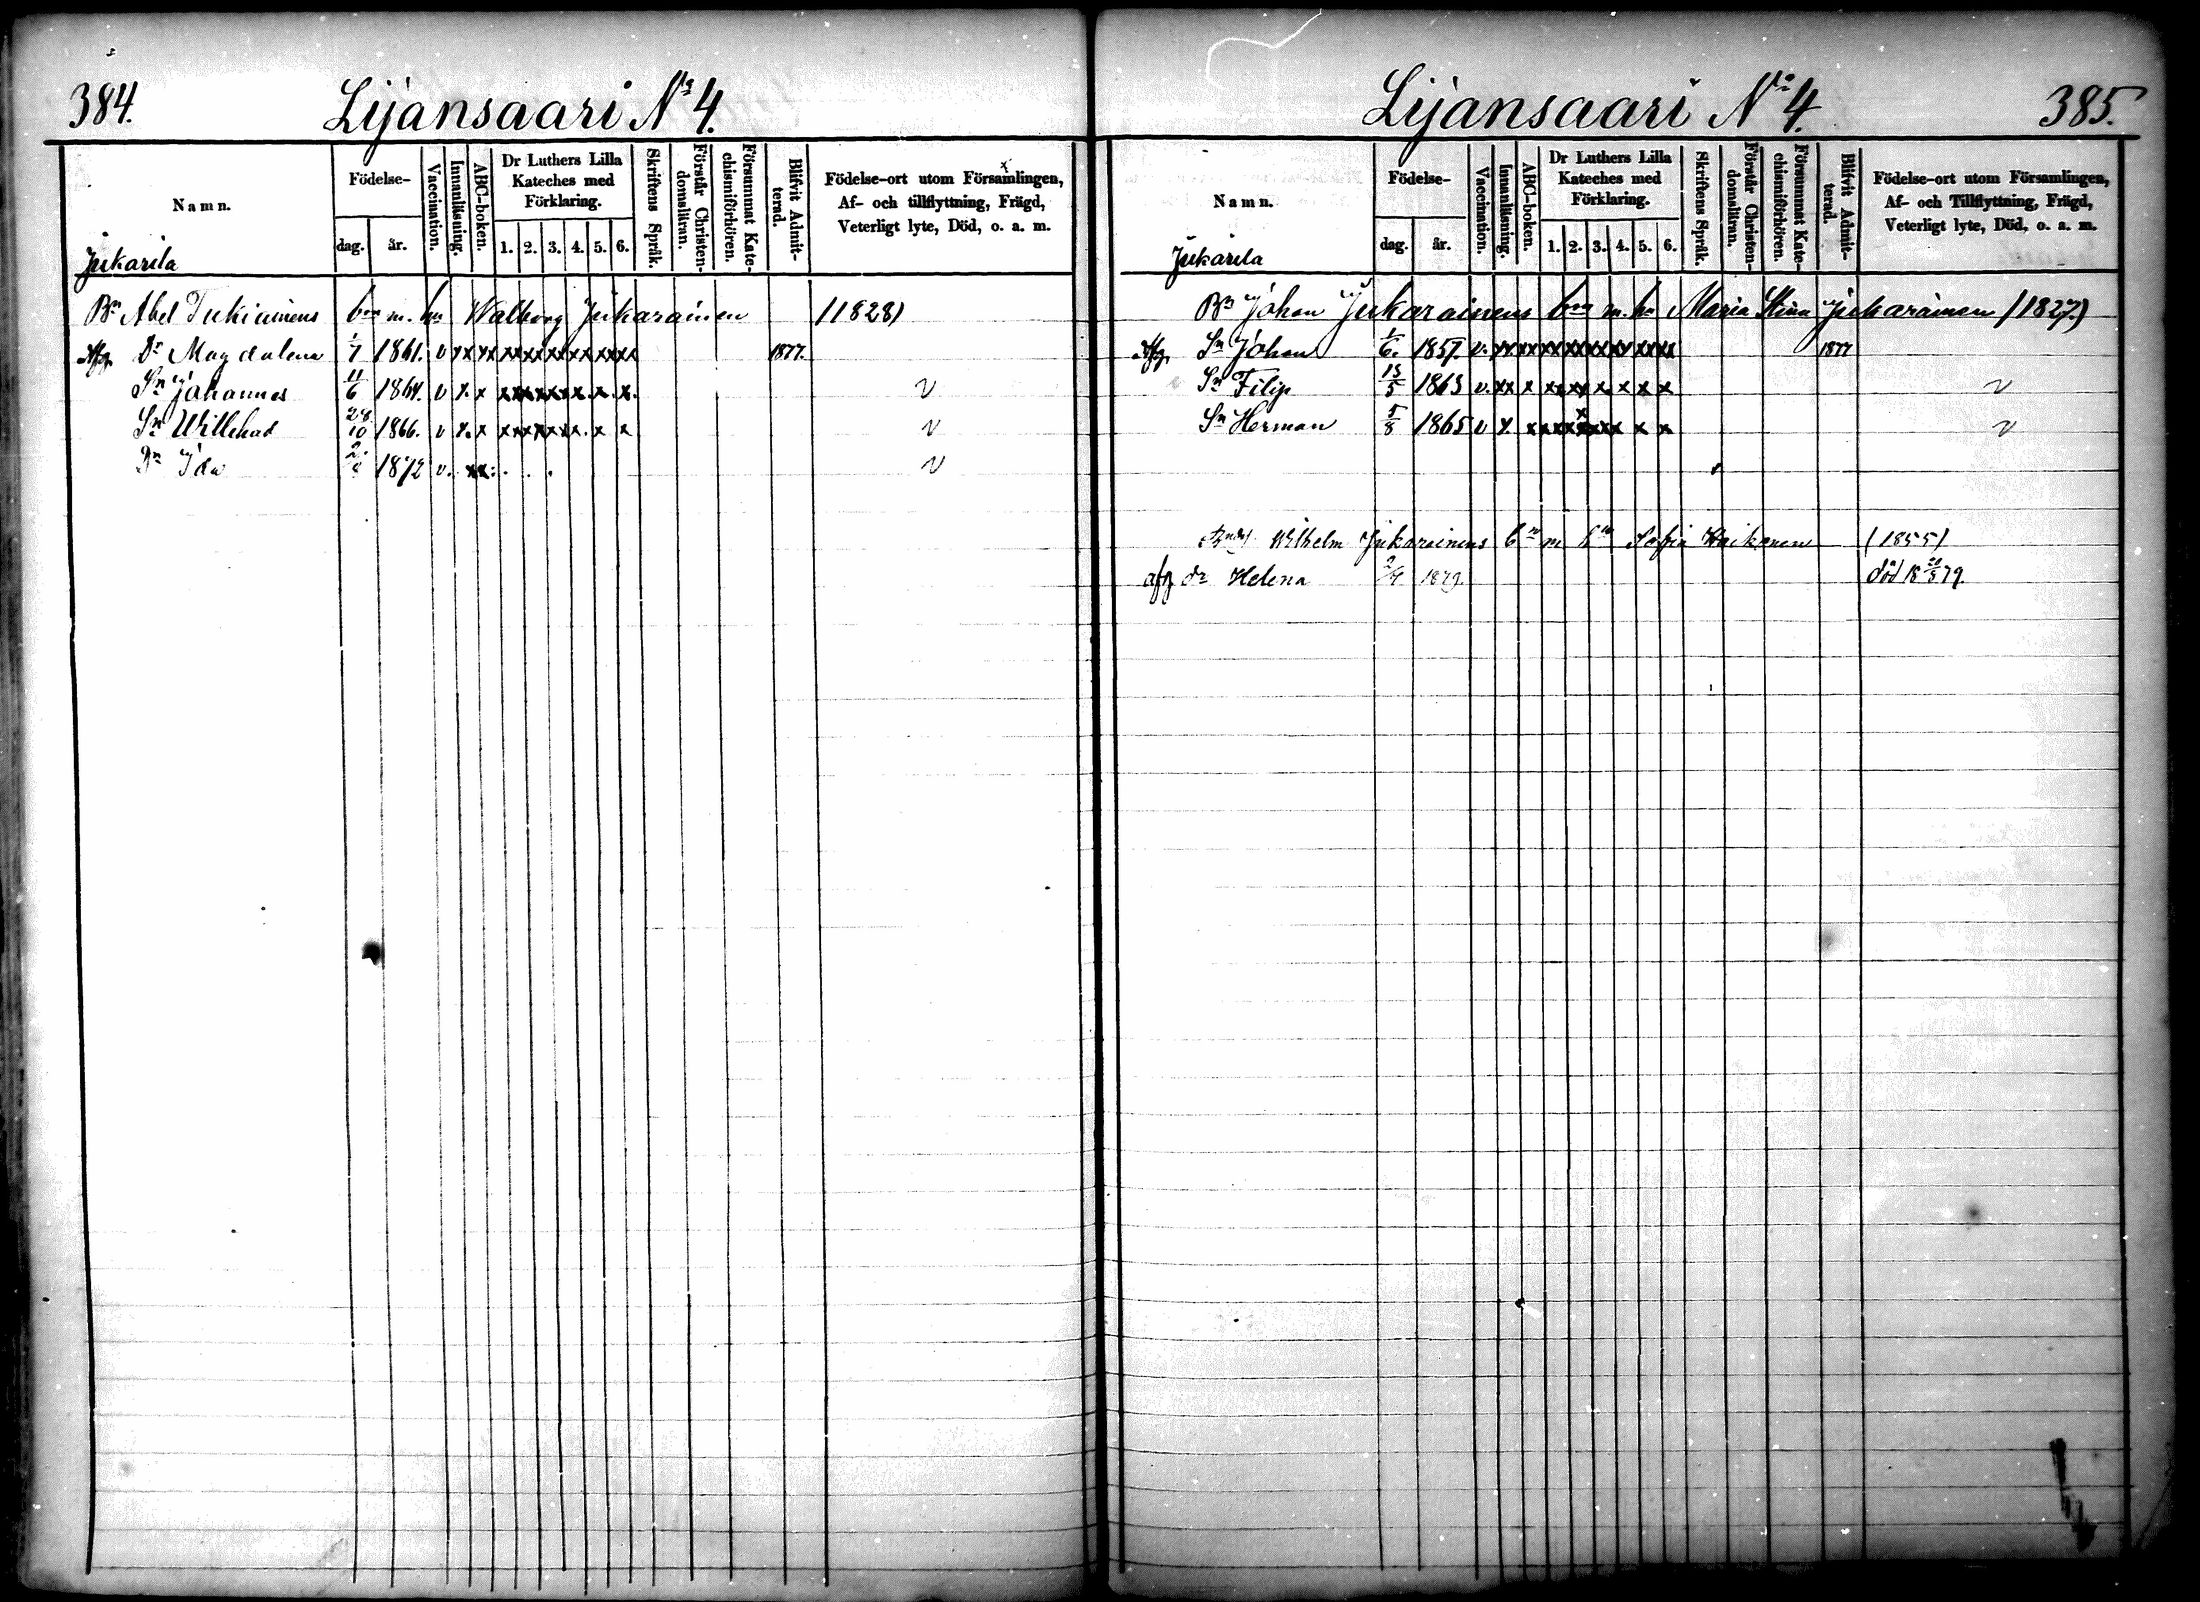 384.
Lijansaari No 4.
Namn.
Födelse-
dag.
år.
Vaccination.
Innanläsning.
ABC-boken.
Dr Luthers Lilla
Kateches med
Förklaring.
1. 2. 3. 4. 5. 6.
Skriftens Språk.
Förstår Christen-
domsläran.
Försummat Kate-
chismiförhören.
Blifvit Admit-
terad.
Födelse-ort utom Församlingen,
Af- och tillflyttning, Frägd,
Veterligt lyte, Död, o. a. m.
Jukarila
Bn Abel Tukiainens bn m. hu Walborg Jukarainen (1828)
Afg. Dr Magdalena 1/7 1861. v xx xx xx xx xx xx xx xx 1877.
Sn Johannes 11/6 1864. v x. x xx xx xx x. x. x. v
Sn Willehad 28/10 1866. v x. x xx xx xx x. x x v
Dr Ida 1872 v. xx . . . v
Lijansaari No 4.
385.
Namn.
Födelse-
dag.
år.
Vaccination.
Innanläsning.
ABC-boken.
Dr Luthers Lilla
Kateches med
Förklaring.
1. 2. 3. 4. 5. 6.
Skriftens Språk.
Förstår Christen-
domsläran.
Försummat Kate-
chismiförhören.
Blifvit Admit-
terad.
Födelse-ort utom Församlingen,
Af- och Tillflyttning, Frägd,
Veterligt lyte, Död, o. a. m.
Jukarila
Bn Johan Jukarainens bn m. hu Maria Stina Jukarainen (1827)
Afg. Sn Johan 1/6. 1857. v. xx xx xx xx xx xx xx xx 1877
Sn Filip 13/5 1863 v. xx x xx xx x x x x v
Sn Herman 5/8 1865 v x xx xx xx xx x x v
Wilhelm Jukarainens bn m hu Sofia Haikonen (1855)
afg dr Helena 2/4 1879. död 18 20/5 79.